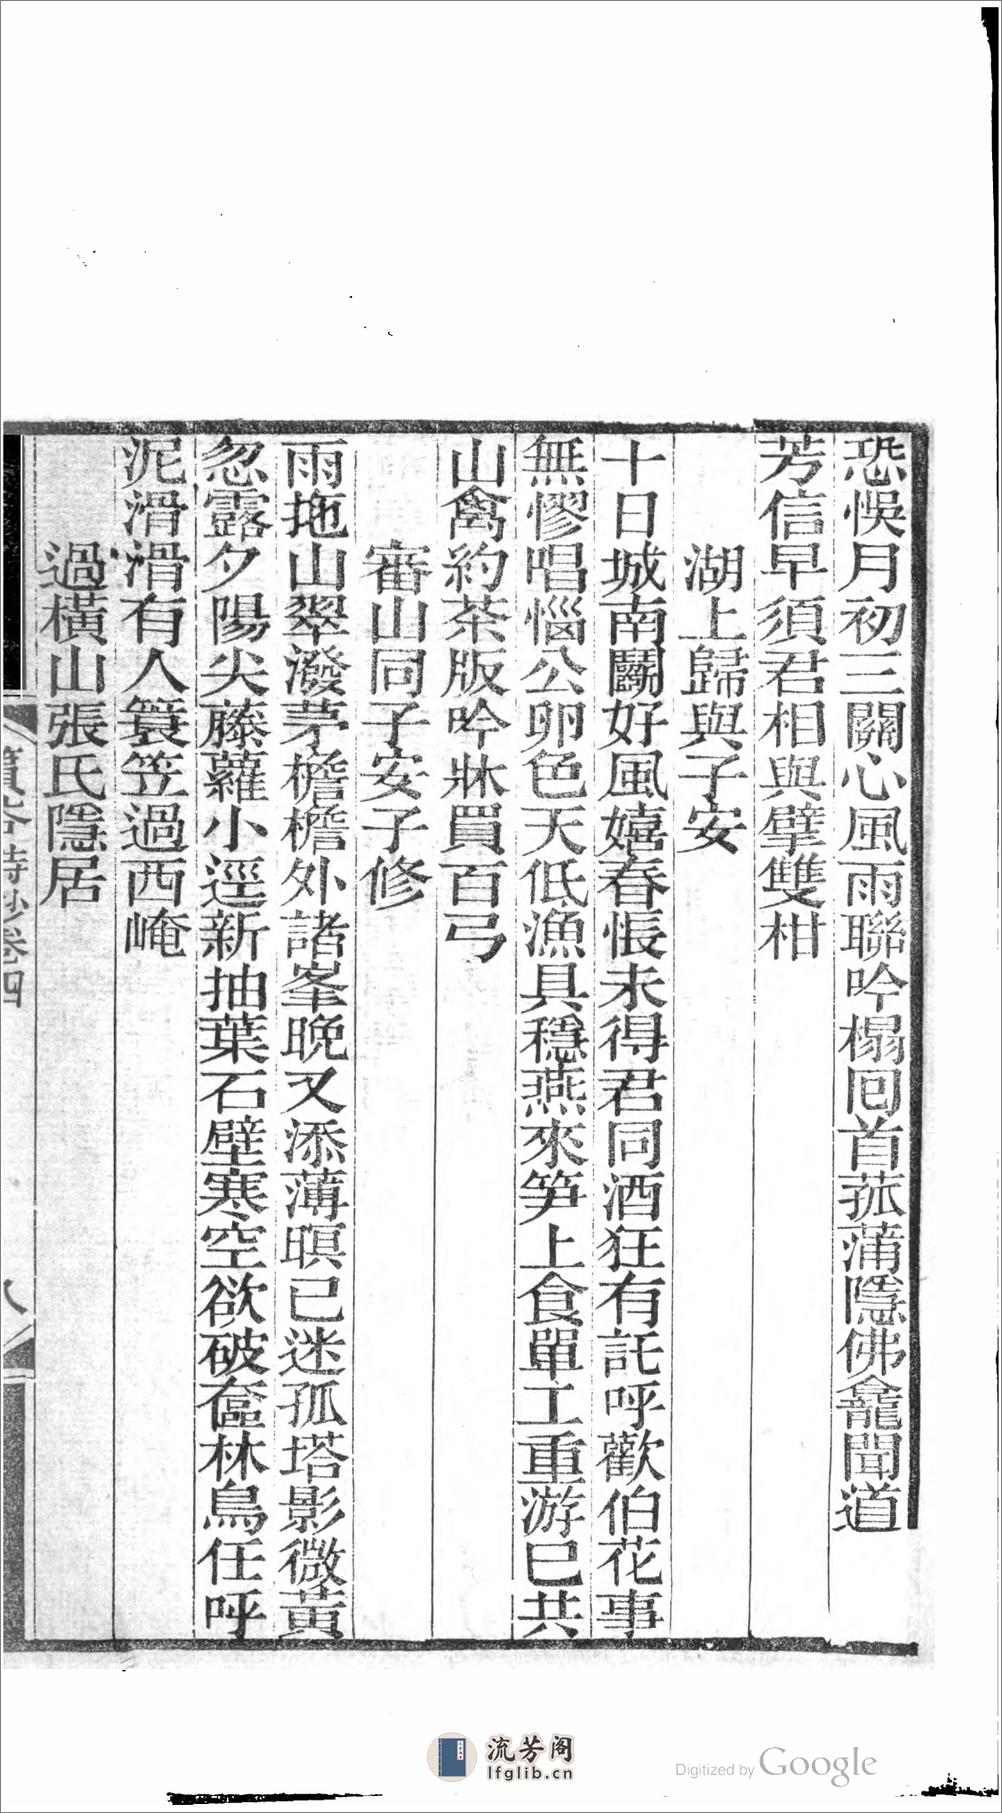 恐悞月初三關心風雨聯吟榻回首菰蒲隱佛龕聞道
芳信早須君相與擘雙柑
湖上歸與子安
十日城南鬭好風嬉春悵未得君同酒狂有託呼歡伯花事
無憀唱惱公卵色天低漁具穩燕來笋上食單工重游已共
山禽約茶版吟牀買百弓
審山同子安子修
雨拖山翠潑茅檐檐外諸峯晚又添薄暝已迷孤塔影微黃
忽露夕陽尖藤蘿小逕新抽葉石壁寒空欲破奩林鳥任呼
泥滑滑有人簑笠過西崦
過橫山張氏隱居
詩鈔卷四
八
流芳阁
lfglib.cn
Digitized by Google